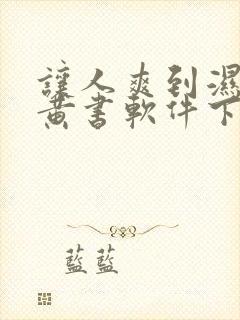 讓人爽到濕
黃書軟件下
藍藍